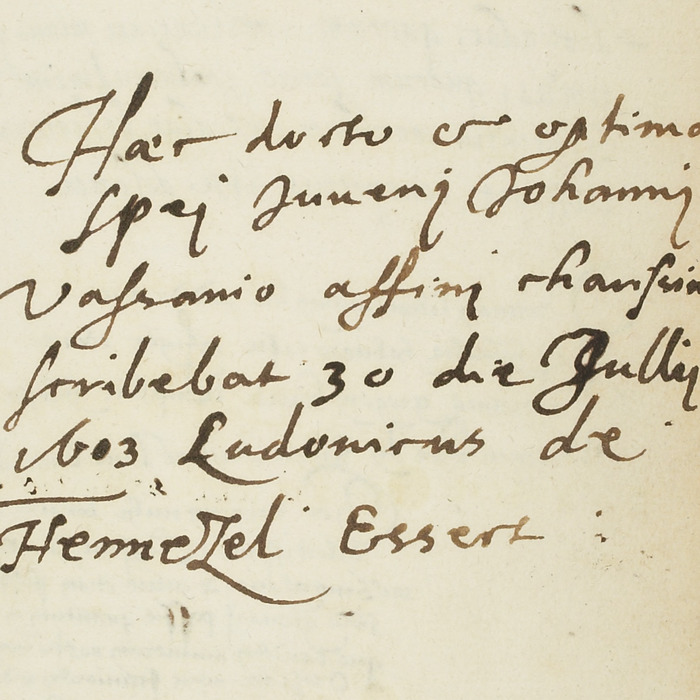 Hæc docto & optimæ
spej Juvenj Johannj
Vassanio affinj charissim
scribebat 30 die Jullij
1603 Ludovicus de
Hennezel Essert :